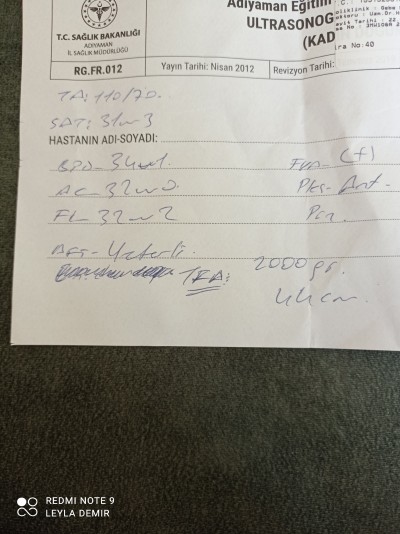 T.C. SAĞLIK BAKANLIĞI
ADIYAMAN
İL SAĞLIK MÜDÜRLÜĞÜ
Adıyaman Eğitim
ULTRASONOG
(KAD
ira No:40
RG.FR.012
Yayın Tarihi: Nisan 2012
Revizyon Tarihi:
TA: 110/70.
SAT: 31w3
HASTANIN ADI-SOYADI:
BPD - 34w1. FKA - (+)
AC - 32w0 Pks - Ant.
FL - 32w2
AFS - Yeterli.
2000 gr.
44 cm.
REDMI NOTE 9
LEYLA DEMIR